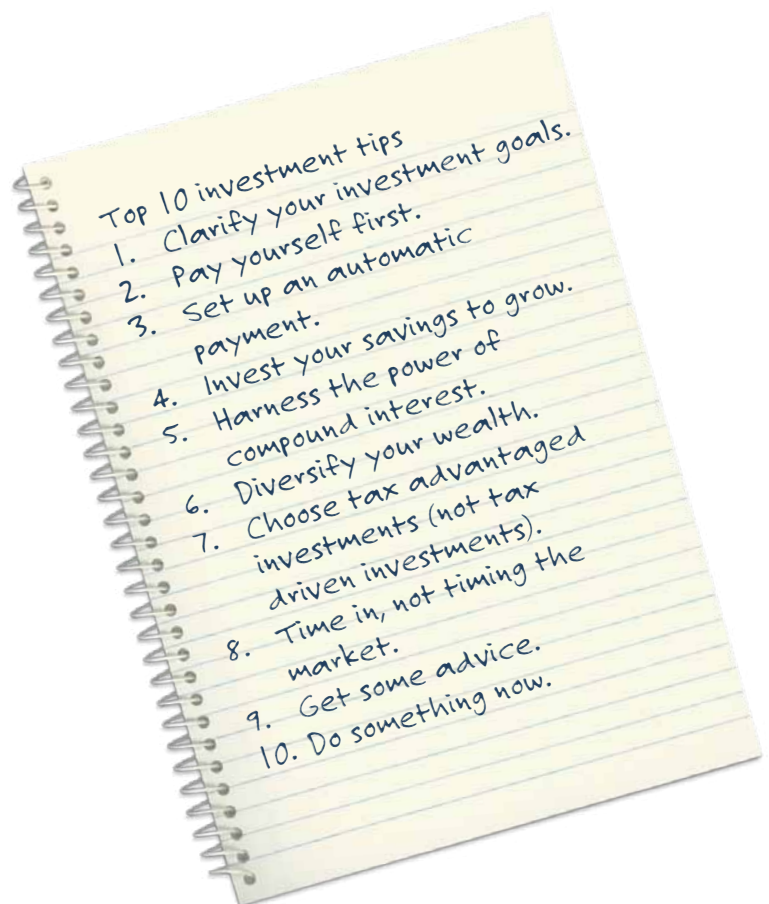 Top 10 investment tips
1. Clarify your investment goals.
2. Pay yourself first.
3. Set up an automatic
payment.
4. Invest your savings to grow.
5. Harness the power of
compound interest.
6. Diversify your wealth.
7. Choose tax advantaged
investments (not tax
driven investments).
8. Time in, not timing the
market.
9. Get some advice.
10. Do something now.